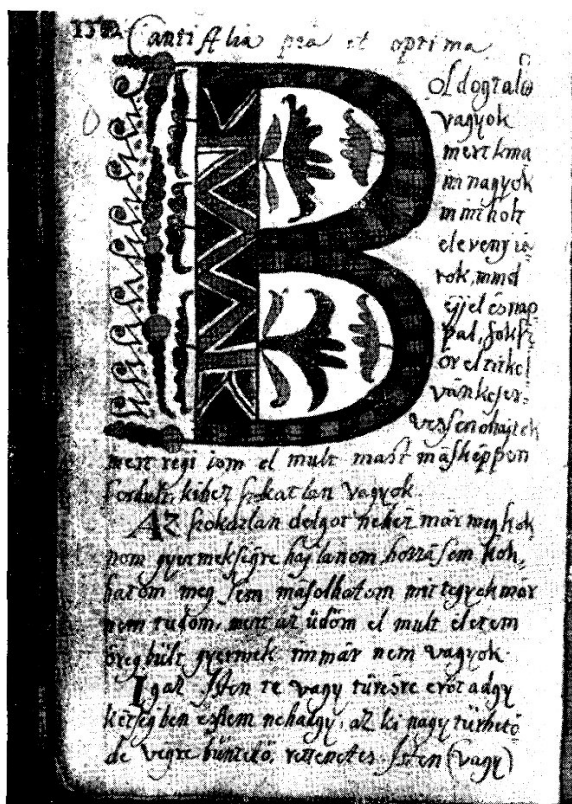 Cantilia pra et optima
B
oldogtala
vagyok
mert ma
in nagyok
mint holt
eleveny ia
rok, mind
éjjel és nap
pal, sok
vessen ohajtek
mert regi iom el mult mast máskeppen
fordult, kihez szokatlan vagyok.
Az szokatlan dolgot nehez már megszok
nom gyermeksegre hajlanom, hozzá sem szok,
hatom meg sem másolhatom mit tegyek már
nem tudom, mert az üdöm el mult eletem
öregbült gyermek immár nem vagyok.
Igaz Isten te vagy türesre eröt adgy
ketsegben estem ne hadgy, az ki nagy türhetö
de vegre büntetö, rettenetes Isten (vagy)